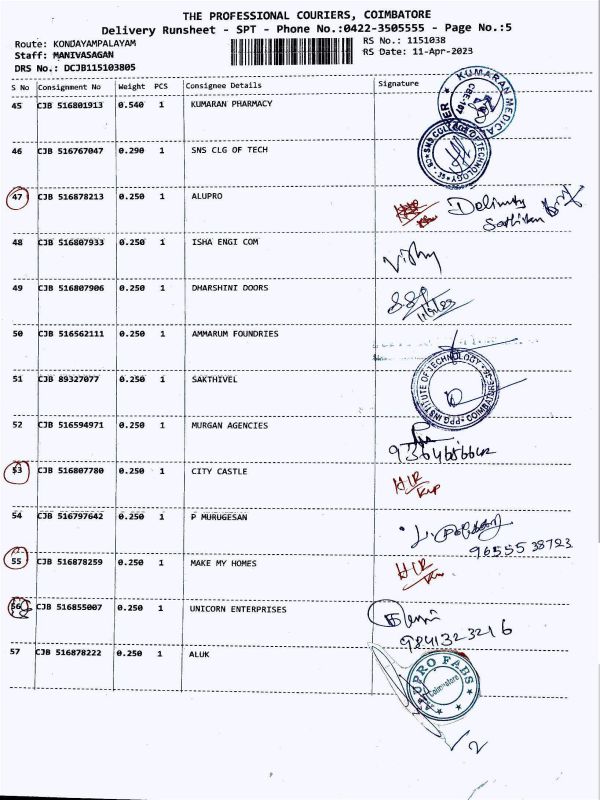 THE PROFESSIONAL COURIERS, COIMBATORE
Delivery Runsheet - SPT - Phone No.:0422-3505555 - Page No.:5
Route: KONDAYAMPALAYAM
RS No.: 1151038
Staff: MANIVASAGAN
RS Date: 11-Apr-2023
DRS No.: DCJB115103805
S No Consignment No Weight PCS Consignee Details Signature
45 CJB 516801913 0.540 1 KUMARAN PHARMACY
KUMARAN MEDICA
46 CJB 516767047 0.290 1 SNS CLG OF TECH
SNS COLLEGE OF TECHNOLOGY
47 CJB 516878213 0.250 1 ALUPRO
48 CJB 516807933 0.250 1 ISHA ENGI COM
49 CJB 516807906 0.250 1 DHARSHINI DOORS
50 CJB 516562111 0.250 1 AMMARUM FOUNDRIES
51 CJB 89327077 0.250 1 SAKTHIVEL
PPG INSTITUTE OF TECHNOLOGY
52 CJB 516594971 0.250 1 MURGAN AGENCIES
53 CJB 516807780 0.250 1 CITY CASTLE
54 CJB 516797642 0.250 1 P MURUGESAN
96555 38723
55 CJB 516878259 0.250 1 MAKE MY HOMES
56 CJB 516855007 0.250 1 UNICORN ENTERPRISES
9841323216
57 CJB 516878222 0.250 1 ALUK
ALUPRO FABS
Coimbatore